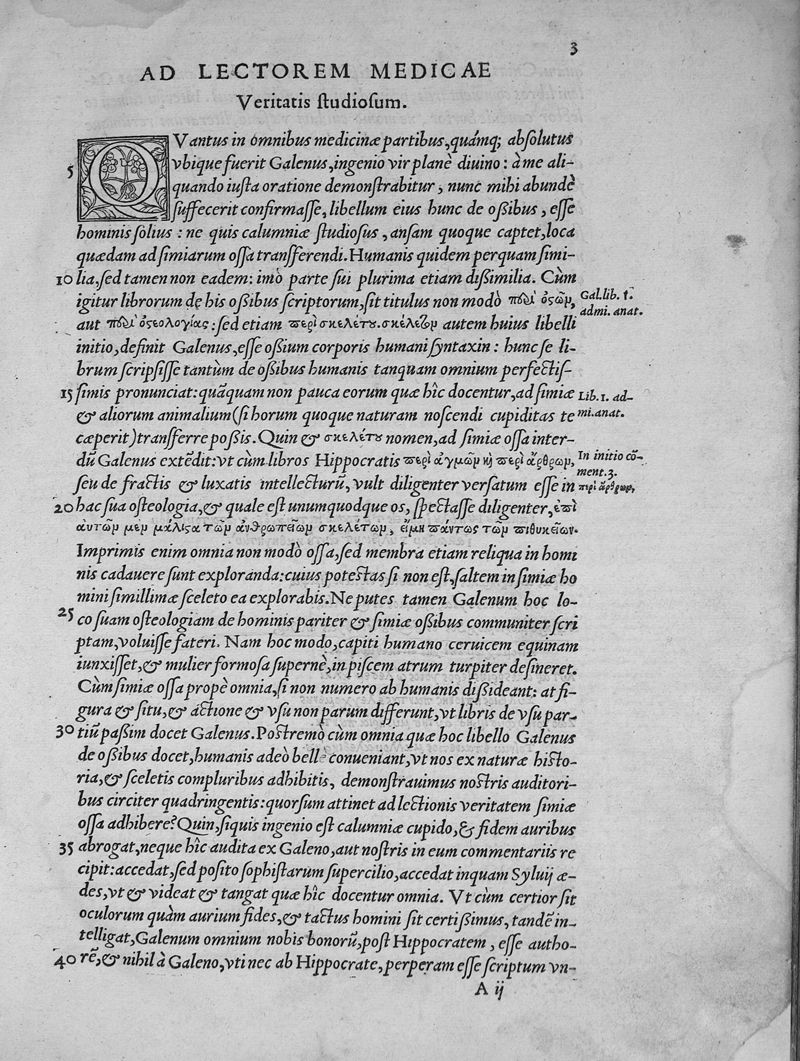 3
AD LECTOREM MEDICAE
Veritatis studiosum.
QVantus in omnibus medicinæ partibus, quámq; absolutus
5 vbique fuerit Galenus, ingenio vir planè diuino: à me ali-
quando iusta oratione demonstrabitur, nunc mihi abundè
suffecerit confirmasse, libellum eius hunc de oßibus, esse
hominis solius: ne quis calumniæ studiosus, ansam quoque captet, loca
quædam ad simiarum ossa transferendi. Humanis quidem perquam simi-
10 lia, sed tamen non eadem: imò parte sui plurima etiam dißimilia. Cùm
igitur librorum de his oßibus scriptorum, sit titulus non modò περὶ ὀστῶν,
Gal. lib. 1.
admi. anat.
aut περὶ ὀστεολογίας: sed etiam περὶ σκελέτου. σκέλετον autem huius libelli
initio, definit Galenus, esse oßium corporis humani syntaxin: hunc se li-
brum scripsisse tantùm de oßibus humanis tanquam omnium perfectis-
15 simis pronunciat: quãquam non pauca eorum quæ hîc docentur, ad simiæ
Lib. 1. ad-
mi. anat.
& aliorum animalium (si horum quoque naturam noscendi cupiditas te
cæperit) transferre poßis. Quin & σκελέτου nomen, ad simiæ ossa inter-
dũ Galenus extẽdit: vt cùm libros Hippocratis περὶ ἀγμῶν κὴ περὶ ἄρθρων,
In initio cõ-
ment. 3.
περὶ ἄρθρων,
seu de fractis & luxatis intellecturũ, vult diligenter versatum esse in
20 hac sua osteologia, & quale est unumquodque os, spectasse diligenter, ἐπὶ
αυτῶν μὲν μάλιςα τῶν ἀνθρωπείων σκελέτων, εἰ μὴ πάντως τῶν πιθηκείων.
Imprimis enim omnia non modò ossa, sed membra etiam reliqua in homi
nis cadauere sunt exploranda: cuius potestas si non est, saltem in simiæ ho
mini simillimæ sceleto ea explorabis. Ne putes tamen Galenum hoc lo-
25 co suam osteologiam de hominis pariter & simiæ oßibus communiter scri
ptam, voluisse fateri. Nam hoc modo, capiti humano ceruicem equinam
iunxisset, & mulier formosa supernè, in piscem atrum turpiter desineret.
Cùm simiæ ossa propè omnia, si non numero ab humanis dißideant: at fi-
gura & situ, & actione & vsu non parum differunt, vt libris de vsu par-
30 tiũ paßim docet Galenus. Postremò cùm omnia quæ hoc libello Galenus
de oßibus docet, humanis adeò bellè conueniant, vt nos ex naturæ histo-
ria, & sceletis compluribus adhibitis, demonstrauimus nostris auditori-
bus circiter quadringentis: quorsum attinet ad lectionis veritatem simiæ
ossa adhibere? Quin, siquis ingenio est calumniæ cupido, & fidem auribus
35 abrogat, neque hîc audita ex Galeno, aut nostris in eum commentariis re
cipit: accedat, sed posito sophistarum supercilio, accedat inquam Syluij æ-
des, vt & videat & tangat quæ hîc docentur omnia. Vt cùm certior sit
oculorum quàm aurium fides, & tactus homini sit certißimus, tandẽ in-
telligat, Galenum omnium nobis bonorũ, post Hippocratem, esse autho-
40 rẽ, & nihil à Galeno, vti nec ab Hippocrate, perperam esse scriptum vn-
A ij